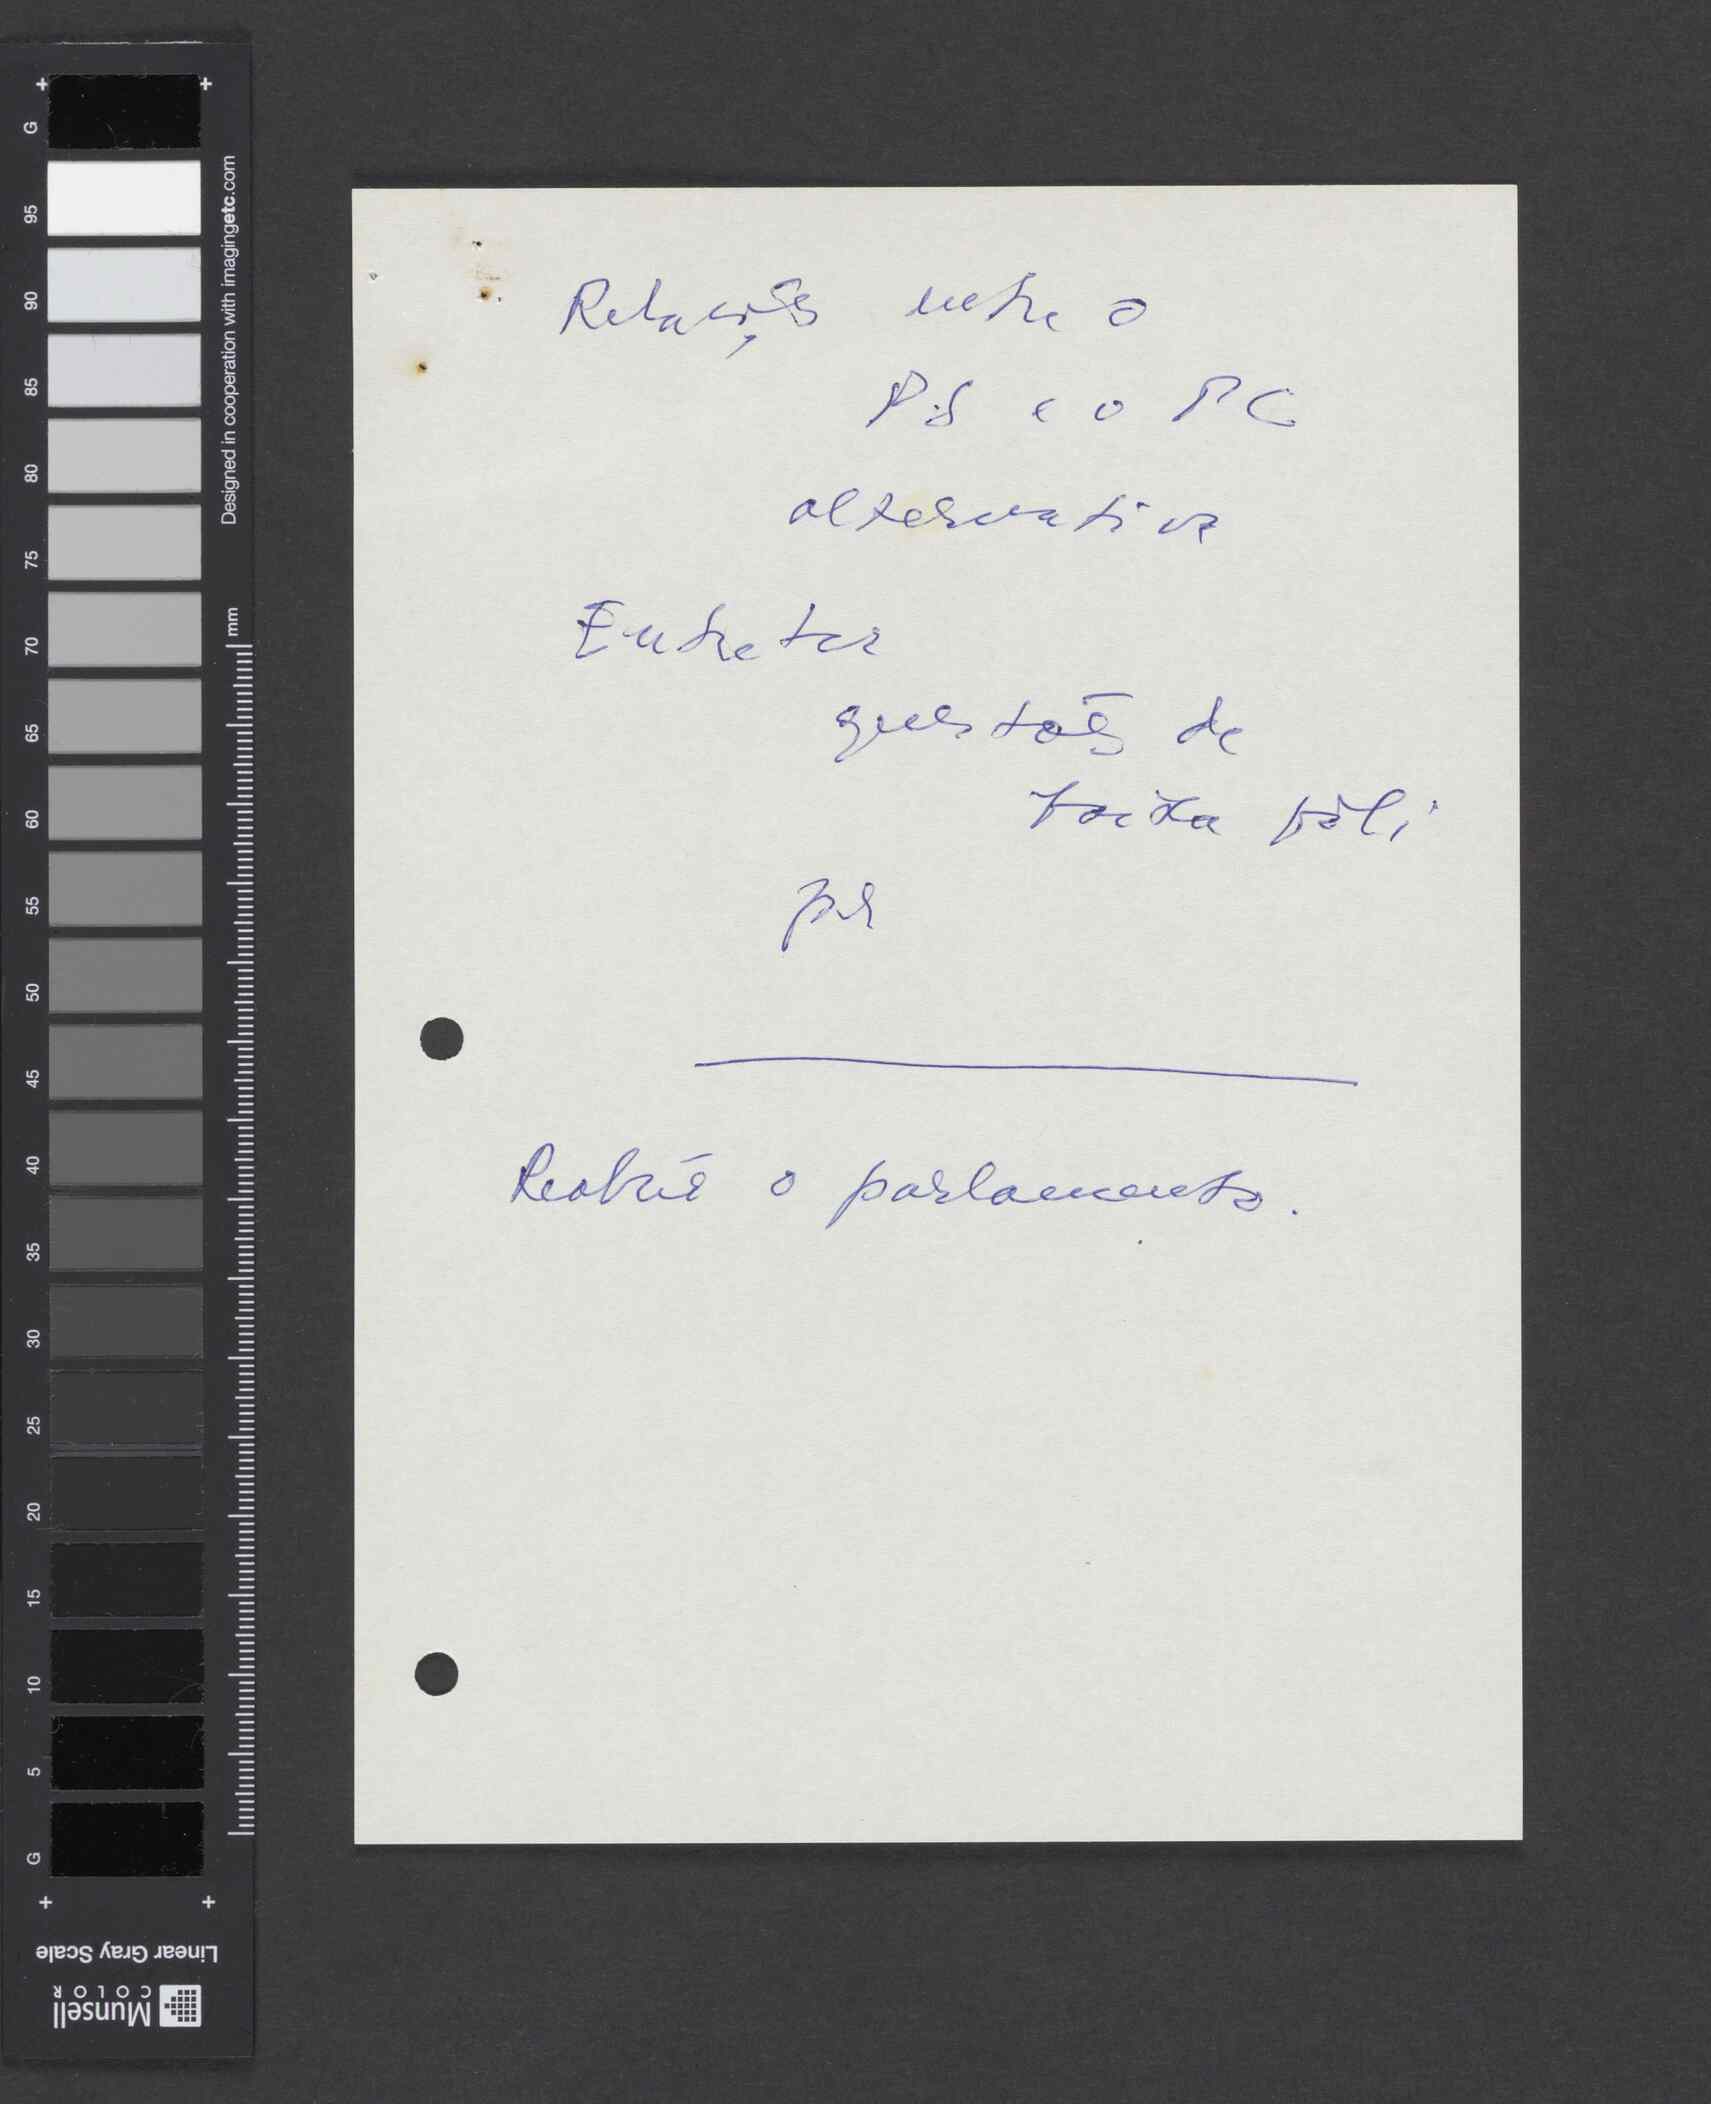 Relações entre o
PS e o PC
alternativa
Entreter
questões de
poli
por
Reabriu o parlamento.
G
95
90
85
80
75
70
65
60
55
50
45
40
35
30
25
20
15
10
5
G
Designed in cooperation with imagingetc.com
mm
Linear Gray Scale
Munsell
COLOR